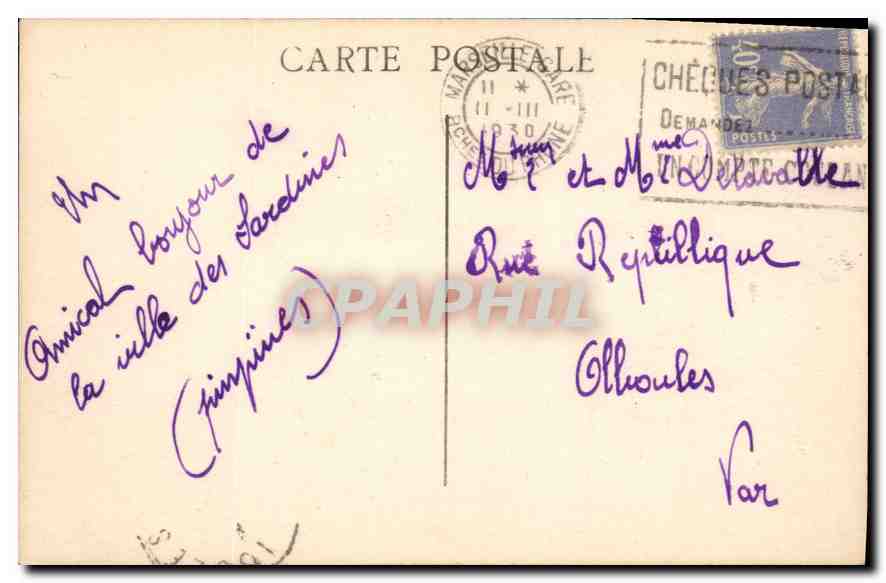 CARTE POSTALE
MARSEILLE-GARE
11 *
11 -III
1930
BCHES DU RHONE
CHÈQUES POSTAUX
DEMANDEZ
UN COMPTE COURANT
40
POSTES
Un
Amical bonjour de
la ville des Sardines
(pinpines)
et Mme Delavalle
Rue Repullique
Ollioules
Var
CPAPHIL